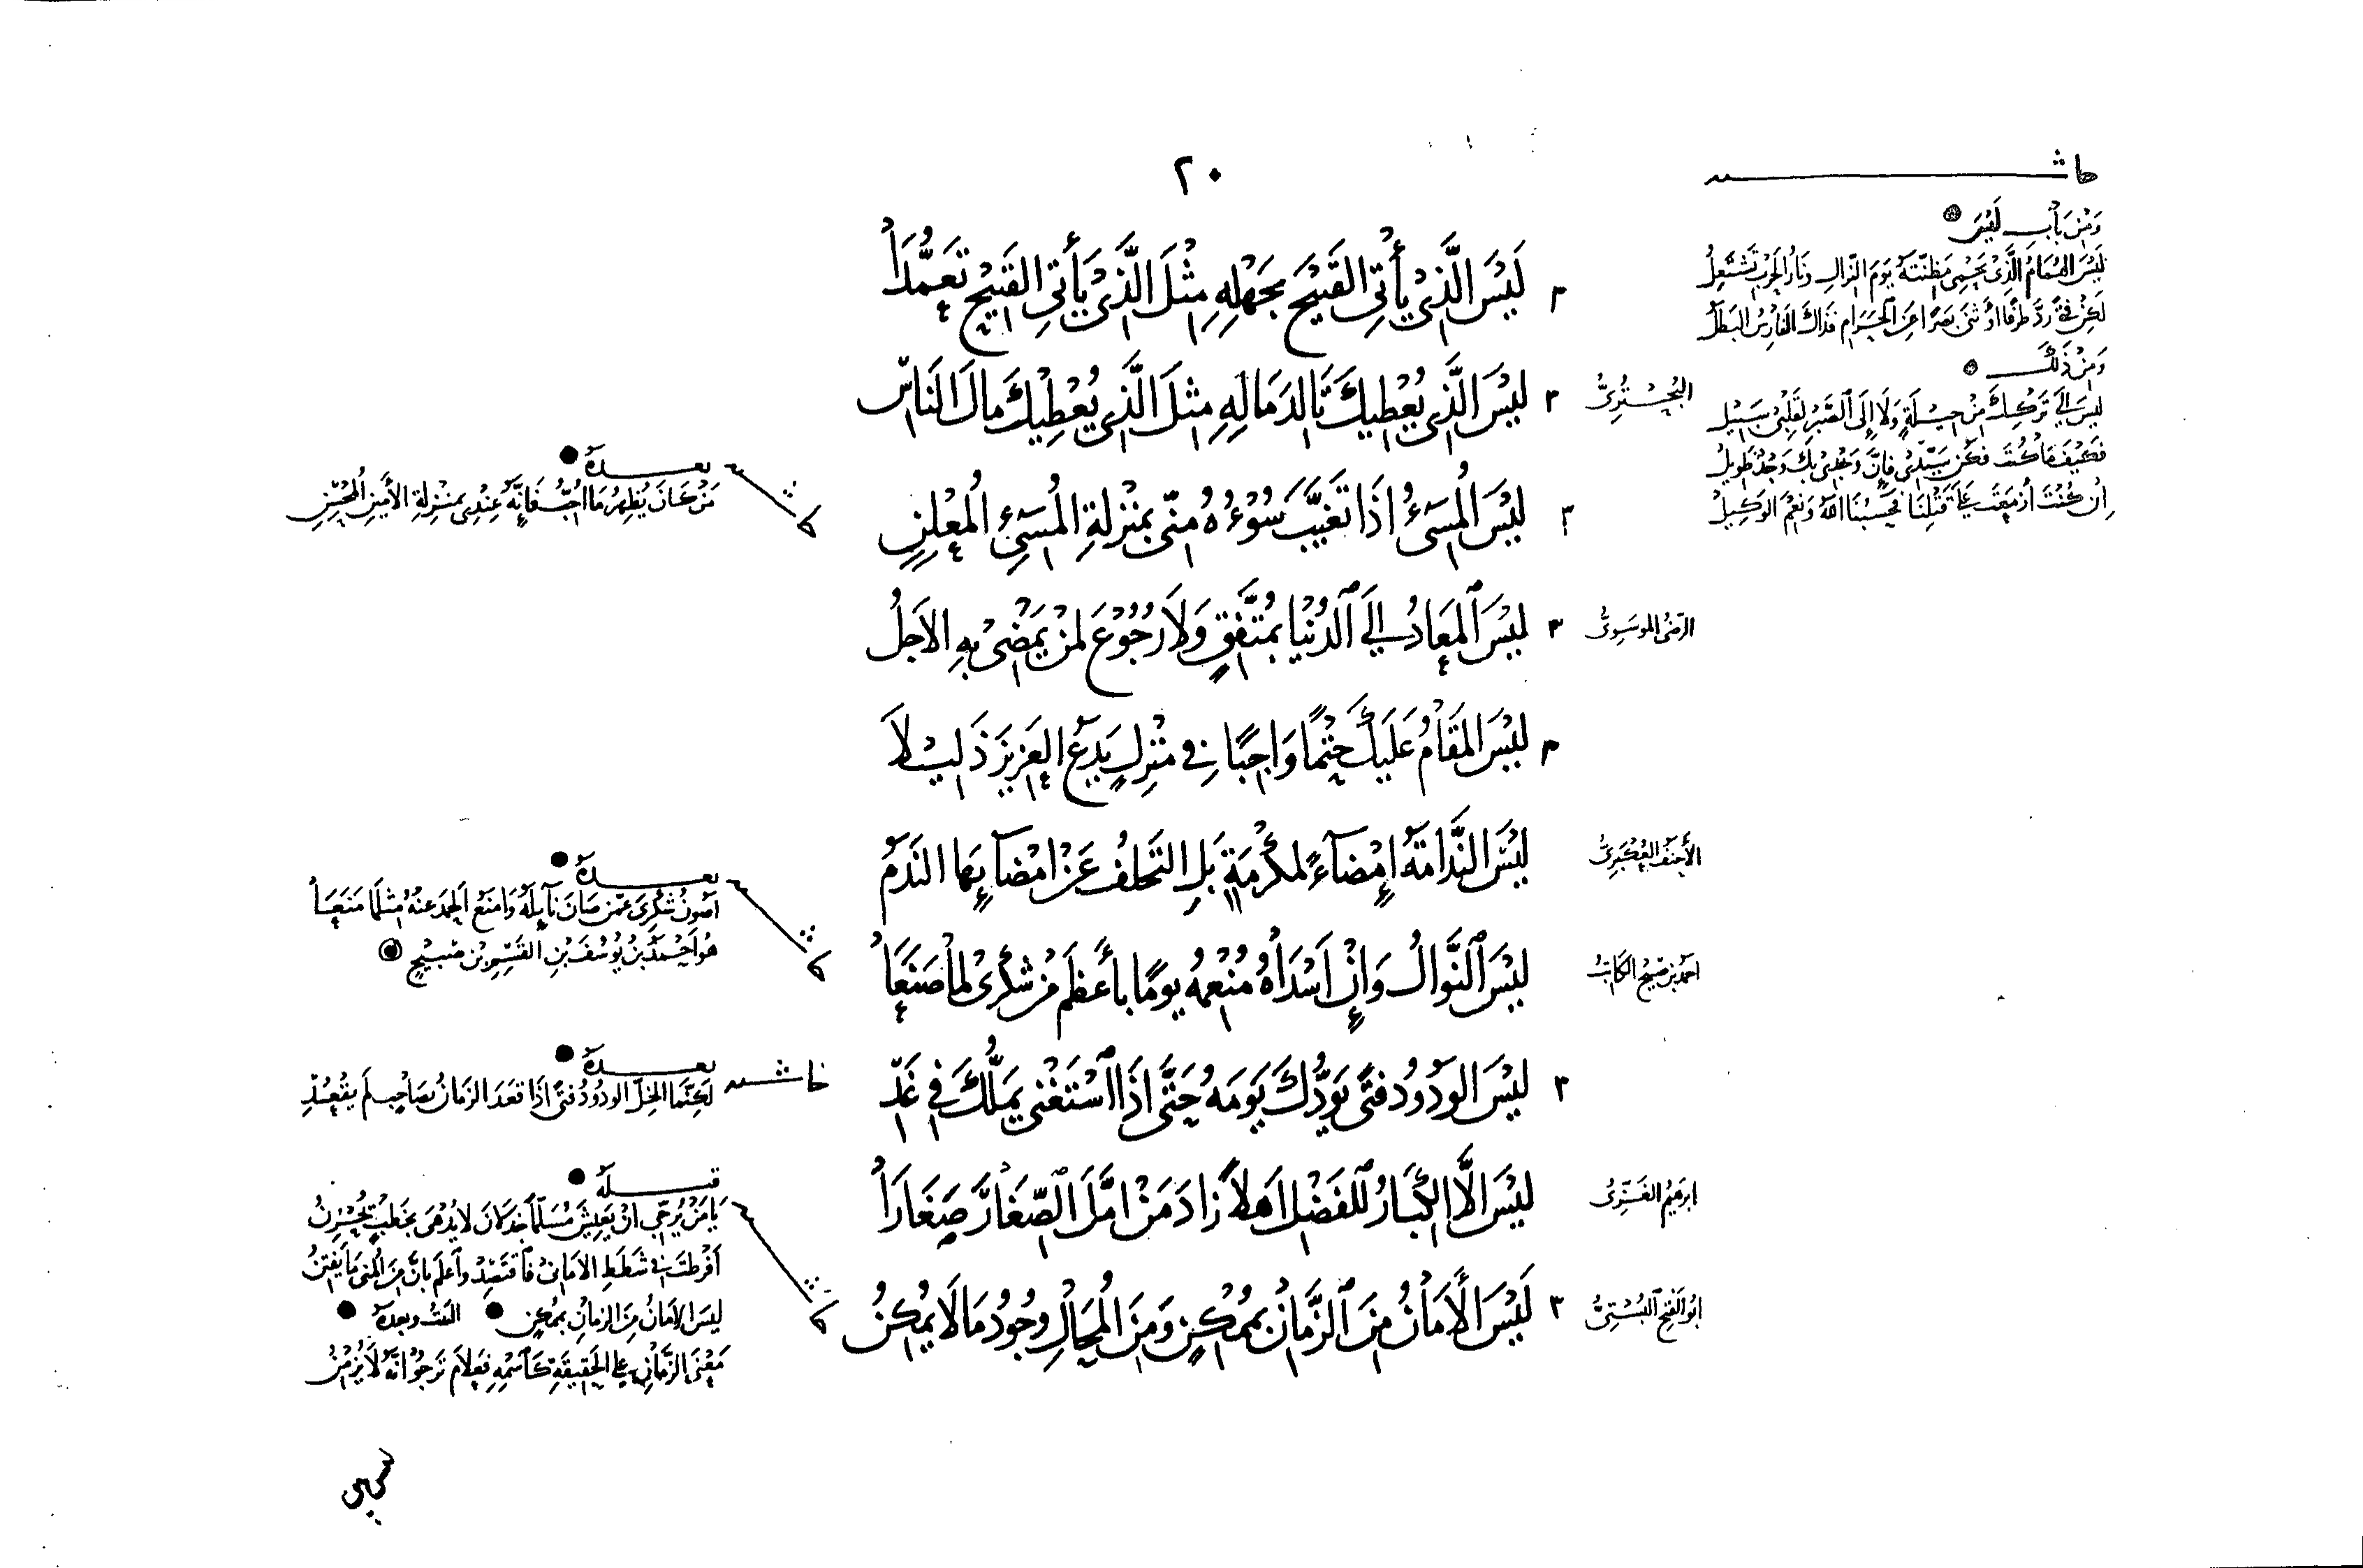 ٢٠
حاشية
وَمِنْ بَابِ لَيْسَ
لَيْسَ الهُمَامُ الَّذِي يَحْمِي مَطِيَّتَهُ يَوْمَ النِّزَالِ وَنَارُ الحَرْبِ تَشْتَعِلُ
لَكِنْ فَتًى رَدَّ طَرْفًا أَوْ ثَنَى بَصَرًا عَنِ الحَرَامِ فَذَاكَ الفَارِسُ البَطَلُ
وَمِنْ ذَلِكَ
لَيْسَ لِي تَرْكِكَ مِنْ حِيْلَةٍ وَلَا إِلَى الصَّبْرِ لِقَلْبِي سَبِيْلُ
فَكَيْفَ مَا كُنْتَ فَكُنْ سَيِّدِي فَإِنَّ وَجْدِي بِكَ وَجْدٌ طَوِيلُ
إِنْ كُنْتَ أَزْمَعْتَ عَلَى قَتْلِنَا فَحَسْبُنَا اللهُ وَنِعْمَ الوَكِيلُ
لَيْسَ الَّذِيْ يَأْتِي القَبِيْحَ بِجَهْلِهِ مِثْلَ الَّذِيْ يَأْتِي القَبِيْحَ تَعَمُّدَا
البُحْتُرِيُّ
لَيْسَ الَّذِي يُعْطِيكَ تَالِدَ مَالِهِ مِثْلَ الَّذِي يُعْطِيْكَ مَالَ النَّاسِ
لَيْسَ المُسِيْءُ إِذَا تَغَيَّبَ سُوْءُهُ مِنّي بِمَنْزِلَةِ المُسِيْءِ المُعْلِنِ
بعده
مَنْ كَانَ يُظْهِرُ مَا أُحِبُّ فَإِنَّهُ عِنْدِي بِمَنْزِلَةِ الأَمِينِ المُحْسِنِ
الرضي الموسوي
لَيْسَ المَعَادُ إِلَى الدُّنْيَا بِمُتَّفِقٍ وَلَا رُجُوْعَ لِمَنْ يَمْضِيْ بِهِ الأَجَلُ
لَيْسَ المَقَامُ عَلَيْكَ حَتْمًا وَاجِبًا فِي مَنْزِلٍ يَدَعُ العَزِيزَ ذَلِيْلَا
الأحنف العكبري
لَيْسَ النَّدَامَةُ إِمْضَاءً لِمَكْرُمَةٍ بَلِ التَّخَلُّفُ عَنْ إِمْضَائِهَا النَّدَمُ
أحمد بن صبيح الكاتب
لَيْسَ النَّوَالُ وَإِنْ أَسْدَاهُ مُنْعِمُهُ يَوْمًا بِأَعْظَمَ مِنْ شُكْرِيْ لِمَا صَنَعَا
بعده
أَصُونُ شُكْرِي عَمَّنْ صَانَ نَائِلَهُ وَأَمْنَعُ الحَمْدَ عَنْهُ مِثْلَمَا مَنَعَا
هُوَ أَحْمَدُ بْنُ يُوسُفَ بْنِ القَسِمِ بْنِ صُبَيْحٍ
لَيْسَ الوَدُودُ فَتًى يَوَدُّكَ يَوْمَهُ حَتَّى إِذَا اسْتَغْنَى يَمَلُّكَ فِي غَدِ
حاشية
بعده
لَكِنَّمَا الخِلُّ الوَدُودُ فَتًى إِذَا قَعَدَ الزَّمَانُ بِصَاحِبٍ لَمْ يَقْعُدِ
إبرهيم الغزي
لَيْسَ إِلَّا الكِبَارُ لِلفَضْلِ أَهْلاً زَادَ مَنْ أَمَّلَ الصِّغَارَ صَغَارَا
أبو الفتح البستي
لَيْسَ الأَمَانُ مِنَ الزَّمَانِ بِمُمْكِنٍ وَمِنَ المُحَالِ وُجُودُ مَا لَا يُمْكِنُ
قبله
يَا مَنْ يُرَجِّي أَنْ يَعِيشَ مُسَلَّمًا جَذْلَانَ لَا يُدْهَى بِخَطْبٍ يُحْزِنُ
أَفْرَطْتَ فِي شَطَطِ الأَمَانِي فَاقْتَصِدْ وَاعْلَمْ بِأَنَّ مِنَ المُنَى مَا يَفْتِنُ
لَيْسَ الأَمَانُ مِنَ الزَّمَانِ بِمُمْكِنٍ البيت وبعده
مَعْنَى الزَّمَانِ عَلَى الحَقِيقَةِ كَاسْمِهِ فَعَلَامَ تَرْجُو أَنَّهُ لَا يُزْمِنُ